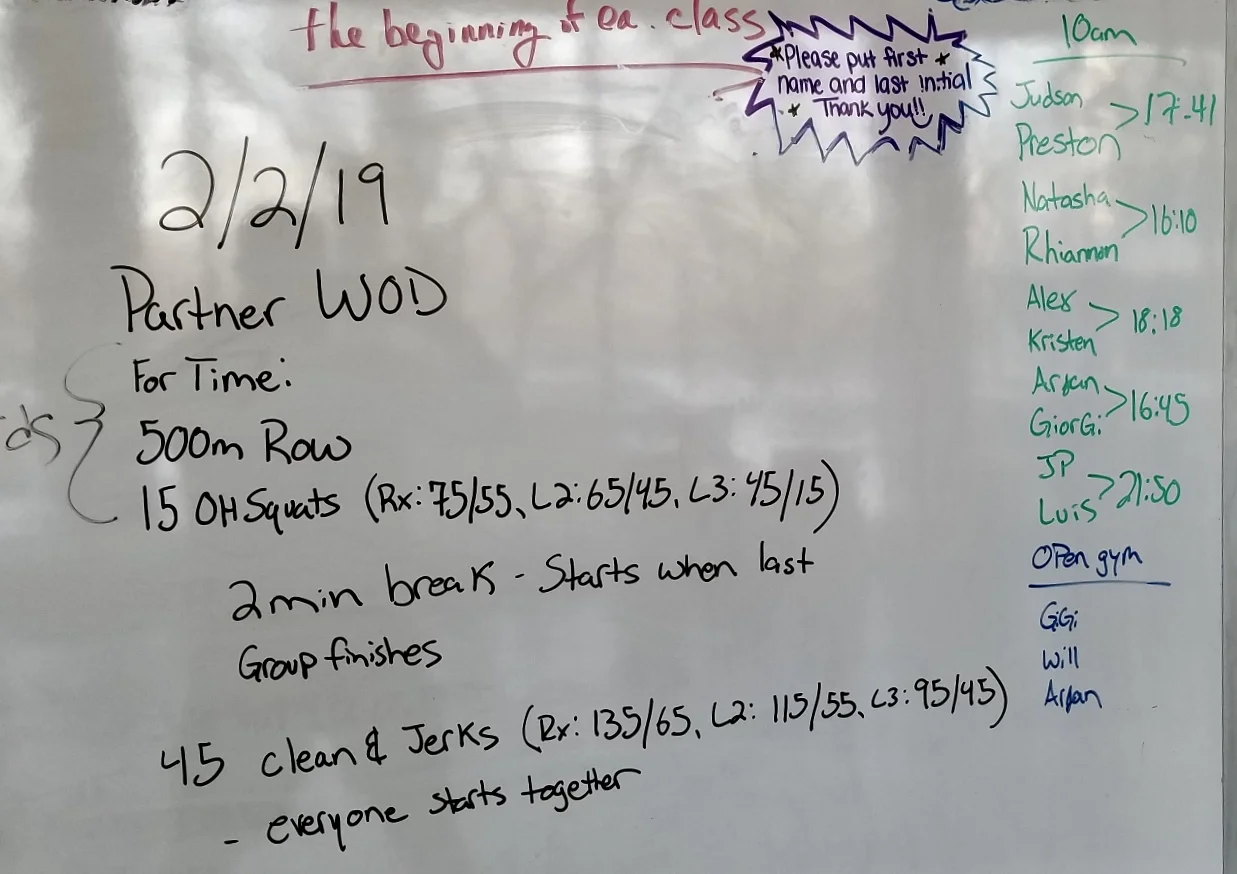 the beginning of ea. class
*Please put first *
name and last initial
* Thank you!!
2/2/19
Partner WOD
For Time:
500m Row
15 OH Squats (Rx: 75/55, L2: 65/45, L3: 45/15)
2 min break - Starts when last
Group finishes
45 clean & Jerks (Rx: 135/65, L2: 115/55, L3: 95/45)
- everyone starts together
10am
Judson
Preston > 17:41
Natasha
Rhiannon > 16:10
Alex
Kristen > 18:18
Arfan
GiorGi > 16:45
JP
Luis > 21:50
Open gym
GiGi
Will
Arfan